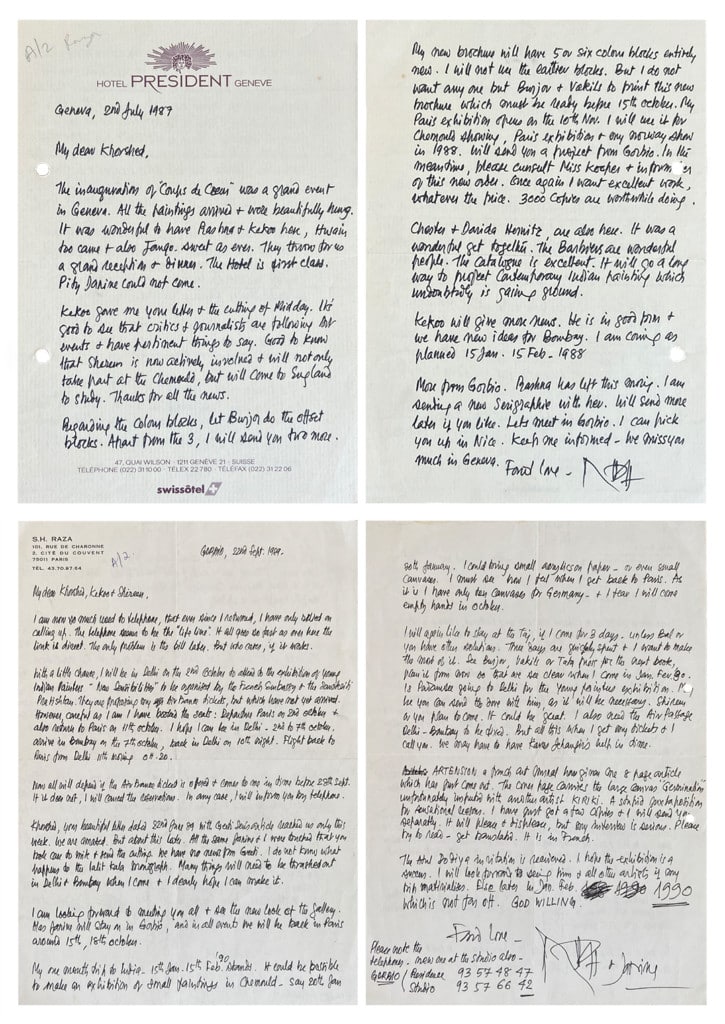 A/2 Raza
HOTEL PRESIDENT GENEVE
Geneva, 2nd July 1987
My dear Khorshed,
The inauguration of "Coups de Coeur" was a grand event
in Geneva. All the paintings arrived & were beautifully hung.
It was wonderful to have Rashna & Kekoo here, Husain
too came & also Jango. sweet as ever. They threw for us
a grand reception & dinner. The Hotel is first class.
Pity Janine could not come.
Kekoo gave me your letter & the cutting of Midday. It's
good to see that critics & journalists are following Art
events & have pertinent things to say. Good to know
that Shireen is now actively involved & will not only
take part at the Chemould, but will come to England
to study. Thanks for all the news.
Regarding the colour blocks, let Burjor do the offset
blocks. Apart from the 3, I will send you two more.
47, QUAI WILSON · 1211 GENÈVE 21 · SUISSE
TÉLÉPHONE (022) 31 10 00 · TÉLEX 22 780 · TÉLÉFAX (022) 31 22 06
swissôtel
My new brochure will have 5 or six colour blocks entirely
new. I will not use the earlier blocks. But I do not
want any one but Burjor & Vakils to print this new
brochure which must be ready before 15th october. My
Paris exhibition opens on the 10th Nov. I will use it for
Chemould showing, Paris exhibition & any norway show
in 1988. Will send you a project from Gorbio. In the
meantime, please consult Miss Kosher & inform
of this new order. Once again I want excellent work,
whatever the price. 3000 Copies are worthwhile doing.
Chester & Davida Herwitz, are also here. It was a
wonderful get together. The Barbiers are wonderful
people. The Catalogue is excellent. It will go a long
way to project Contemporary Indian painting which
undoubtedly is gaining ground.
Kekoo will give more news. He is in good form &
we have new ideas for Bombay. I am coming as
planned 15 Jan. 15 Feb - 1988
More from Gorbio. Rashna has left this morning. I am
sending a new Serigraphie with her. Will send more
later if you like. Lets meet in Gorbio. I can pick
you up in Nice. Keep me informed - We miss you
much in Geneva. Fond love -
S.H. RAZA
101, RUE DE CHARONNE
2, CITÉ DU COUVENT
75011 PARIS
TÉL. 43.70.97.54
A/2.
GORBIO, 22nd Sept. 1989.
My dear Khorshed, Kekoo & Shireen,
I am now so much used to telephone, that ever since I returned, I have only relied on
calling up. The telephone seems to be the "life line". It all goes so fast as ever here the
link is direct. The only problem is the bill later. But who cares, if it works.
With a little chance, I will be in Delhi on the 2nd October to attend to the exhibition of young
Indian Painters - "New Sensibilities" to be organised by the French Embassy & the Sanskriti
Pratishtan. They are proposing my air bonus tickets, but which have not yet arrived.
However, careful as I am I have booked the seat: Departure Paris on 2nd october &
also return to Paris on 11th october. I hope I can be in Delhi - 2nd to 7th october,
arrive in Bombay on the 7th october, back in Delhi on 10th night. Flight back to
Paris from Delhi 11th morning 07.20.
Now all will depend if the Air Bonus ticket is offered & comes to me in time before 28th Sept.
If it does not, I will cancel the reservations. In any case, I will inform you by telephone.
Khorshed, your beautiful letter dated 22nd June 89 with article reached us only this
week. We are amazed. But about this later. All the same Janine & I were touched that you
took care to write & send the cutting. We have no news from Geeti. I do not know what
happens to the Lalit Kala Monograph. Many things will need to be thrashed out
in Delhi & Bombay when I come & I dearly hope I can make it.
I am looking forward to meeting you all & see the new look of the Gallery.
Mrs Janine will stay on in Gorbio, and in all events we will be back in Paris
around 15th, 18th october.
My one month trip to India - 15th Jan. 15th Feb. '90 stands. It could be possible
to make an exhibition of small paintings in Chemould - say 20th Jan
30th January. I could bring small acrylics on paper - or even small
canvases. I must see how I feel when I get back to Paris. As
it is I have only ten canvases for Germany - & I fear I will come
empty hands in october.
I will again like to stay at the Taj, if I come for 3 days. unless Bal or
you have other solution. These days are quickly spent & I want to make
the most of it. See Burjor, Vakils or Tata press for the next book,
plan it from now so that we see clear when I come in Jan. Feb. 90.
Is Parsuram going to Delhi for the young painters exhibition.
be you can send the book with him, as it will be necessary. Shireen
or you plan to come. It could be great. I also need the Air Passage
Delhi - Bombay to be fixed. But all this when I get my tickets & I
call you. We may have to have Kavas Jehangir's help in time.
ARTENSION a french art journal has given me 8 page article
which has just come out. The cover page carries the large canvas "Germination"
unfortunately imputed with another artist KIRIKI. A stupid juxtaposition
for sensational reasons. I have just got a few copies & I will send you
separately. It will please & displease, but my interview is serious. Please
try to read - get translated. It is in French.
The Atul Dodiya invitation is received. I hope the exhibition is a
success. I will look forward to seeing him & all other artists if my
trip materialises. Else later in Jan. Feb. 1990
which is not far off. GOD WILLING.
Fond Love -
& Janine
Please note the
telephone - now one at the studio also -
GORBIO / Residence 93 57 48 47
Studio 93 57 66 42